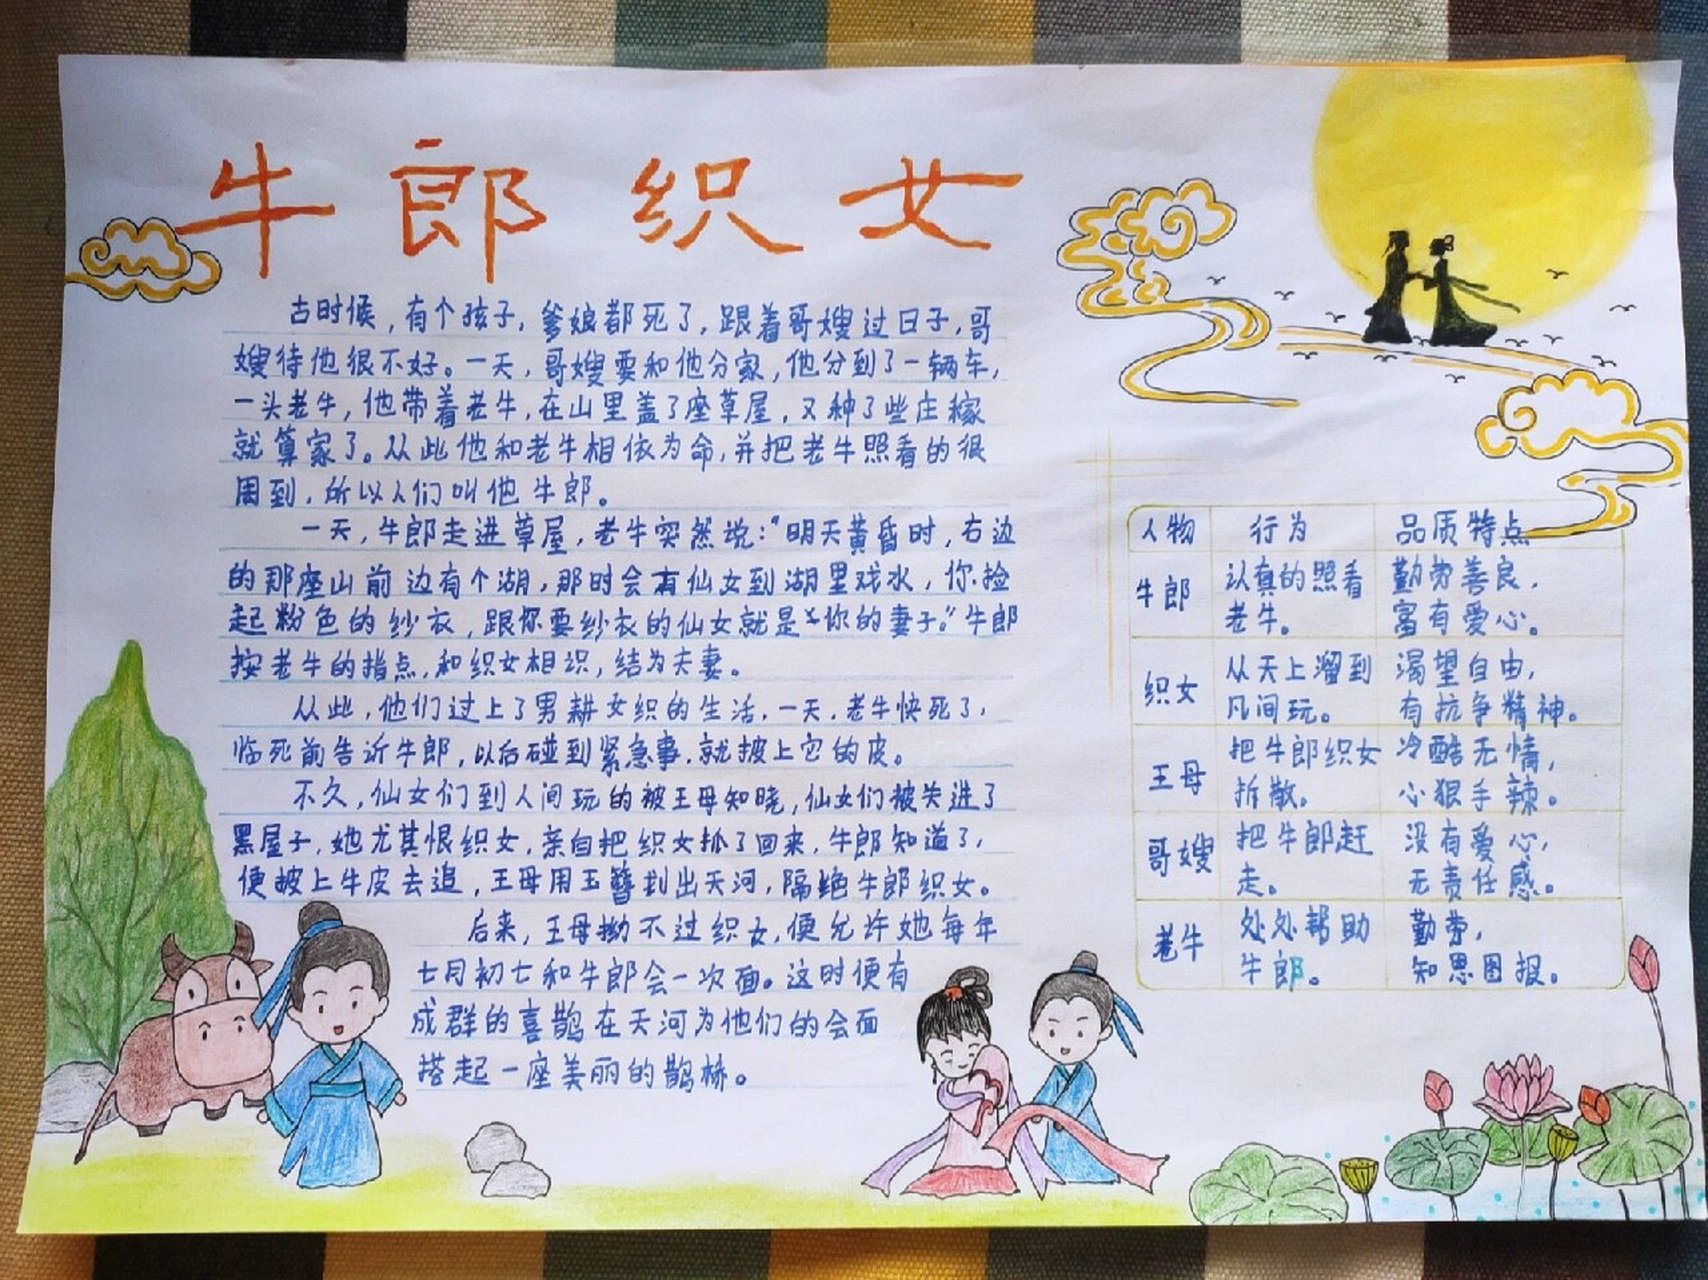 牛郎织女
古时候,有个孩子,爹娘都死了,跟着哥嫂过日子,哥
嫂待他很不好。一天,哥嫂要和他分家,他分到了一辆车,
一头老牛,他带着老牛,在山里盖了座草屋,又种了些庄稼
就算家了。从此他和老牛相依为命,并把老牛照看的很
周到,所以人们叫他牛郎。
一天,牛郎走进草屋,老牛突然说:“明天黄昏时,右边
的那座山前边有个湖,那时会有仙女到湖里戏水,你捡
起粉色的纱衣,跟你要纱衣的仙女就是你的妻子。”牛郎
按老牛的指点,和织女相识,结为夫妻。
从此,他们过上了男耕女织的生活,一天,老牛快死了,
临死前告诉牛郎,以后碰到紧急事,就披上它的皮。
不久,仙女们到人间玩的被王母知晓,仙女们被关进了
黑屋子,她尤其恨织女,亲自把织女抓了回来,牛郎知道了,
便披上牛皮去追,王母用玉簪划出天河,隔绝牛郎织女。
后来,王母拗不过织女,便允许她每年
七月初七和牛郎会一次面。这时便有
成群的喜鹊在天河为他们的会面
搭起一座美丽的鹊桥。
人物 行为 品质特点
牛郎 认真的照看老牛。 勤劳善良,富有爱心。
织女 从天上溜到凡间玩。 渴望自由,有抗争精神。
王母 把牛郎织女拆散。 冷酷无情,心狠手辣。
哥嫂 把牛郎赶走。 没有爱心,无责任感。
老牛 处处帮助牛郎。 勤劳,知恩图报。